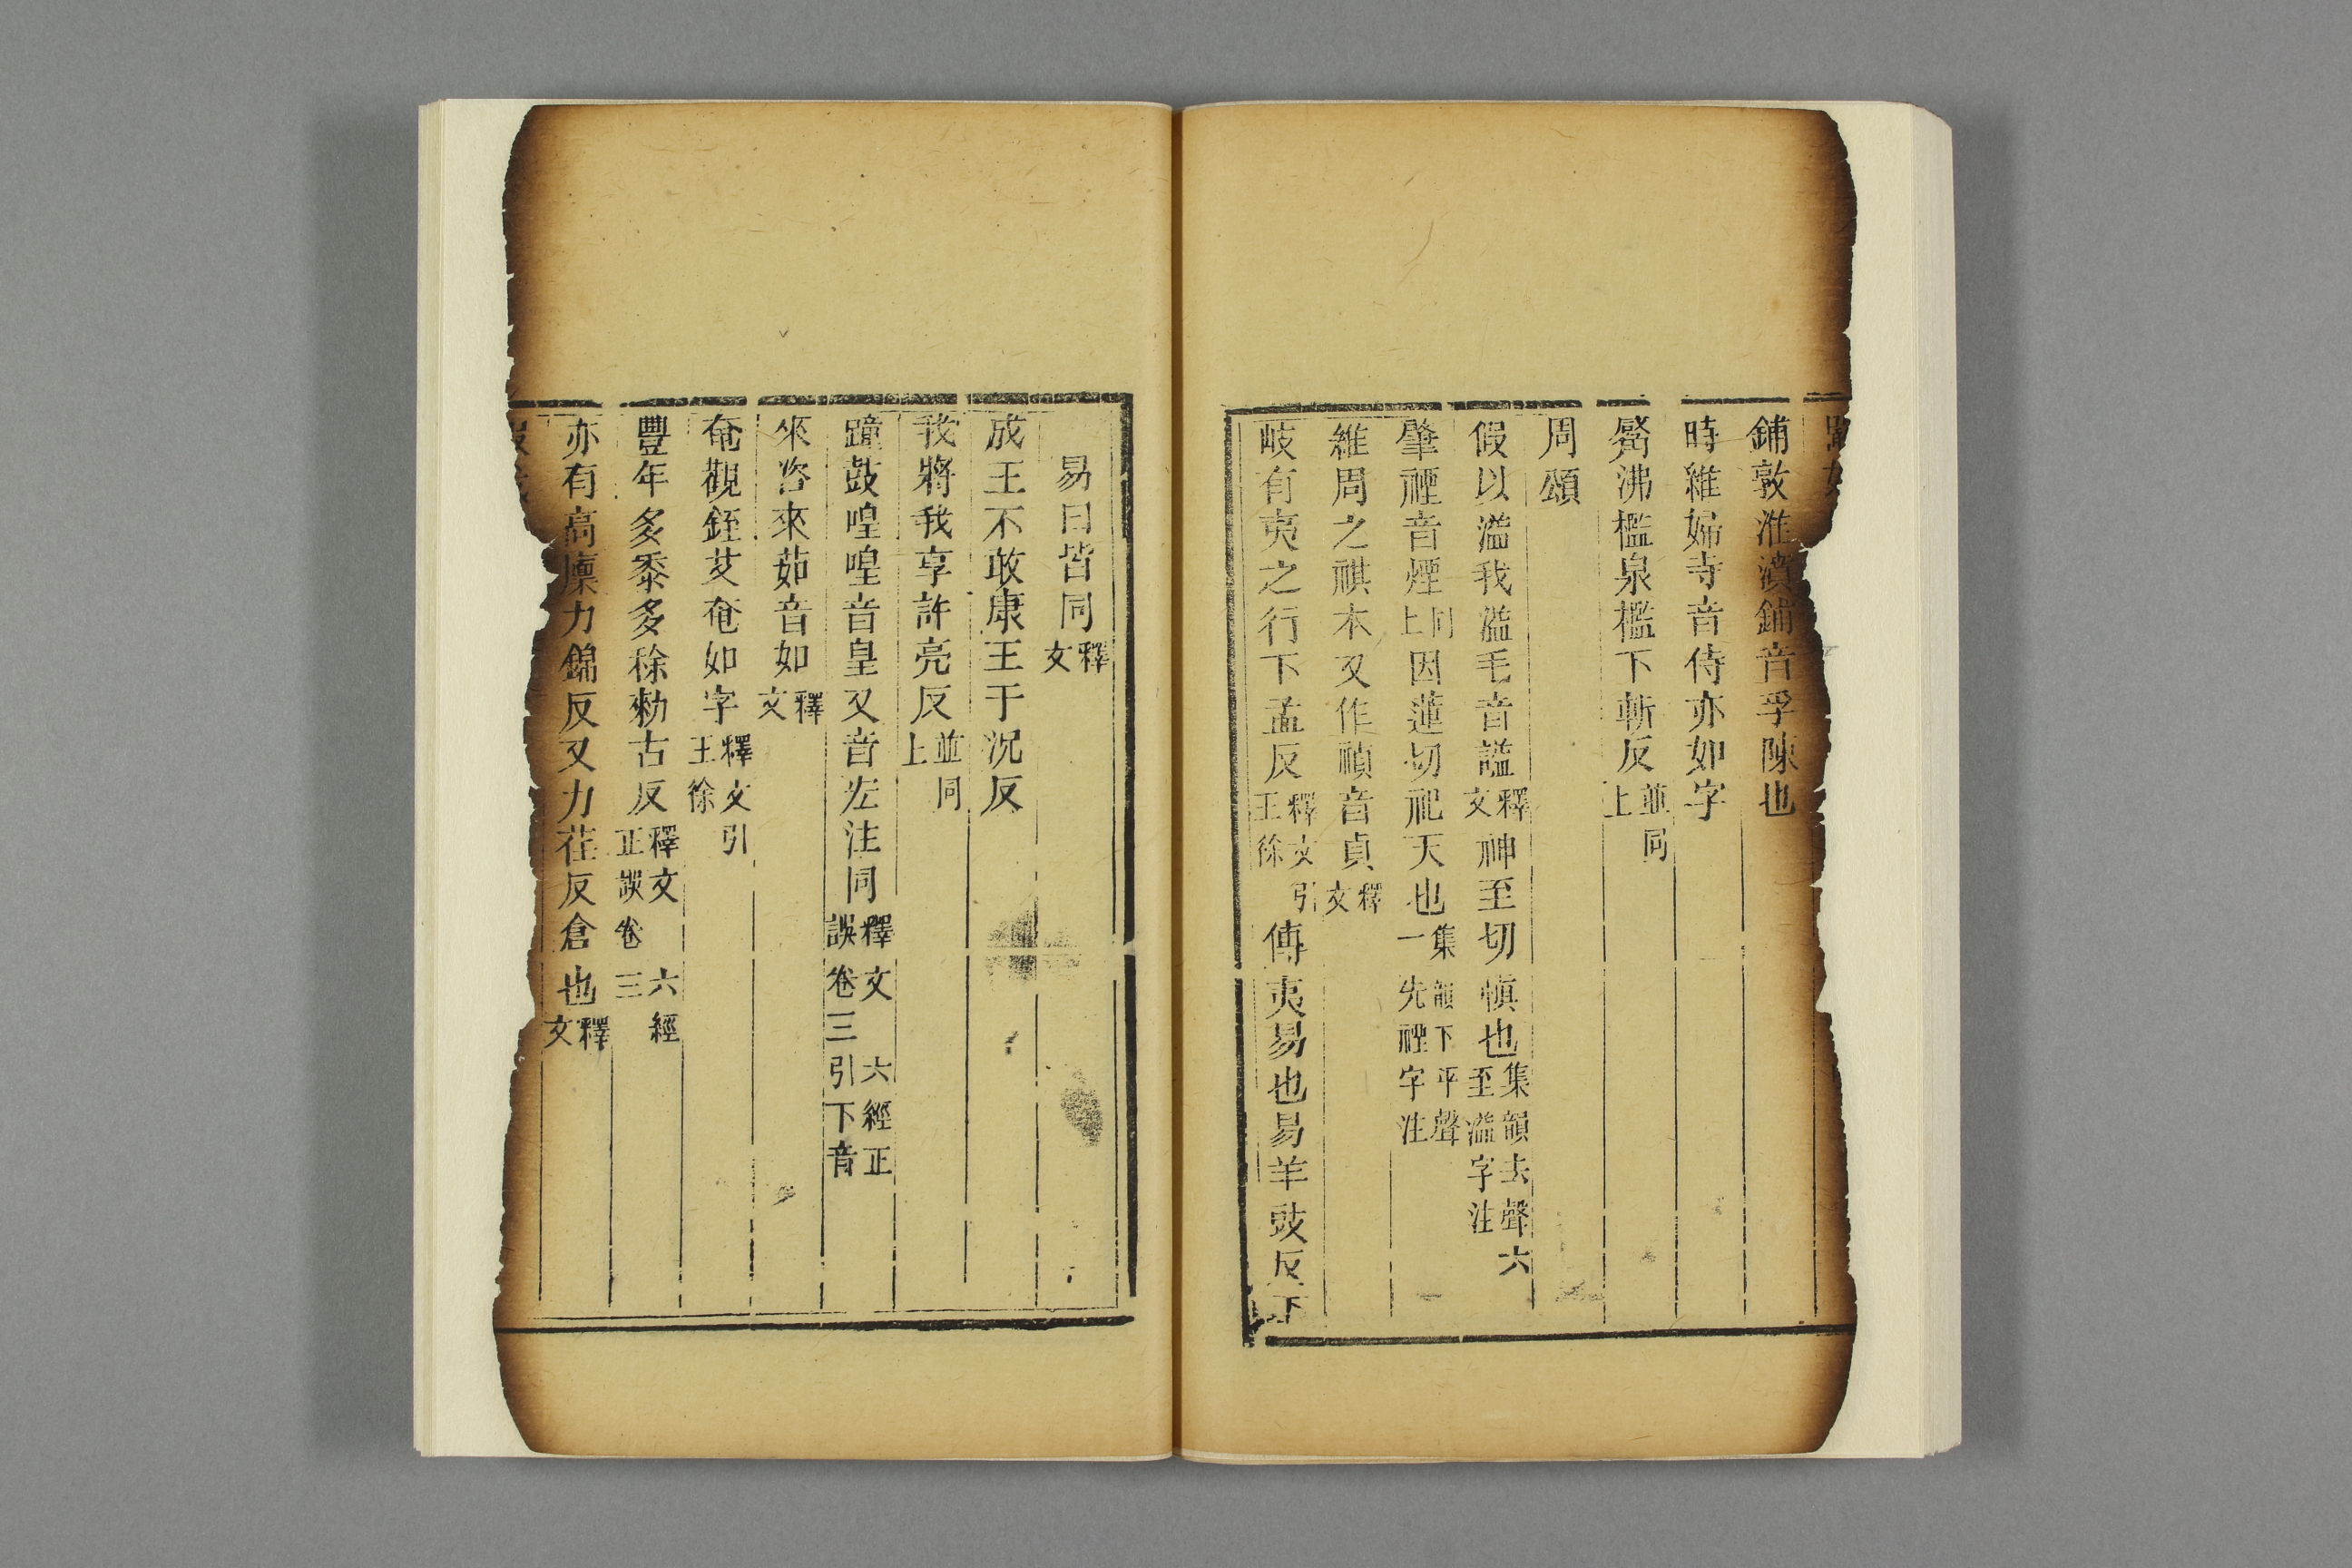 鋪敦淮濆鋪音孚陳也
時維婦寺音侍亦如字
觱沸檻泉檻下斬反並同上
周頌
假以溢我溢毛音謚釋文神至切慎也集韻去聲六至溢字注
肇禋音煙同上因蓮切祀天也集韻下平聲一先禋字注
維周之祺本又作禎音貞釋文
岐有夷之行下孟反釋文引王徐傳夷易也易羊豉反下
易曰皆同釋文
成王不敢康王于況反
我將我享許亮反並同上
鐘鼓喤喤音皇又音宏注同釋文六經正誤卷三引下音
來咨來茹音如釋文
奄觀銍艾奄如字釋文引王徐
豐年多黍多稌勑古反釋文六經正誤卷三
亦有高廩力錦反又力荏反倉也釋文